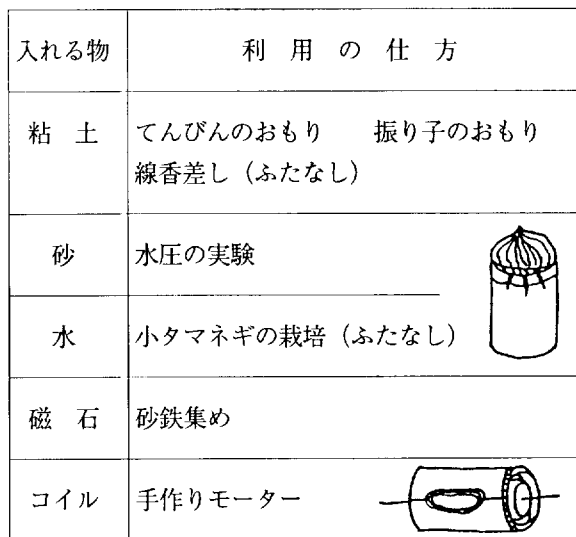 入れる物 利用の仕方
粘土 てんびんのおもり 振り子のおもり
線香差し（ふたなし）
砂 水圧の実験
水 小タマネギの栽培（ふたなし）
磁石 砂鉄集め
コイル 手作りモーター